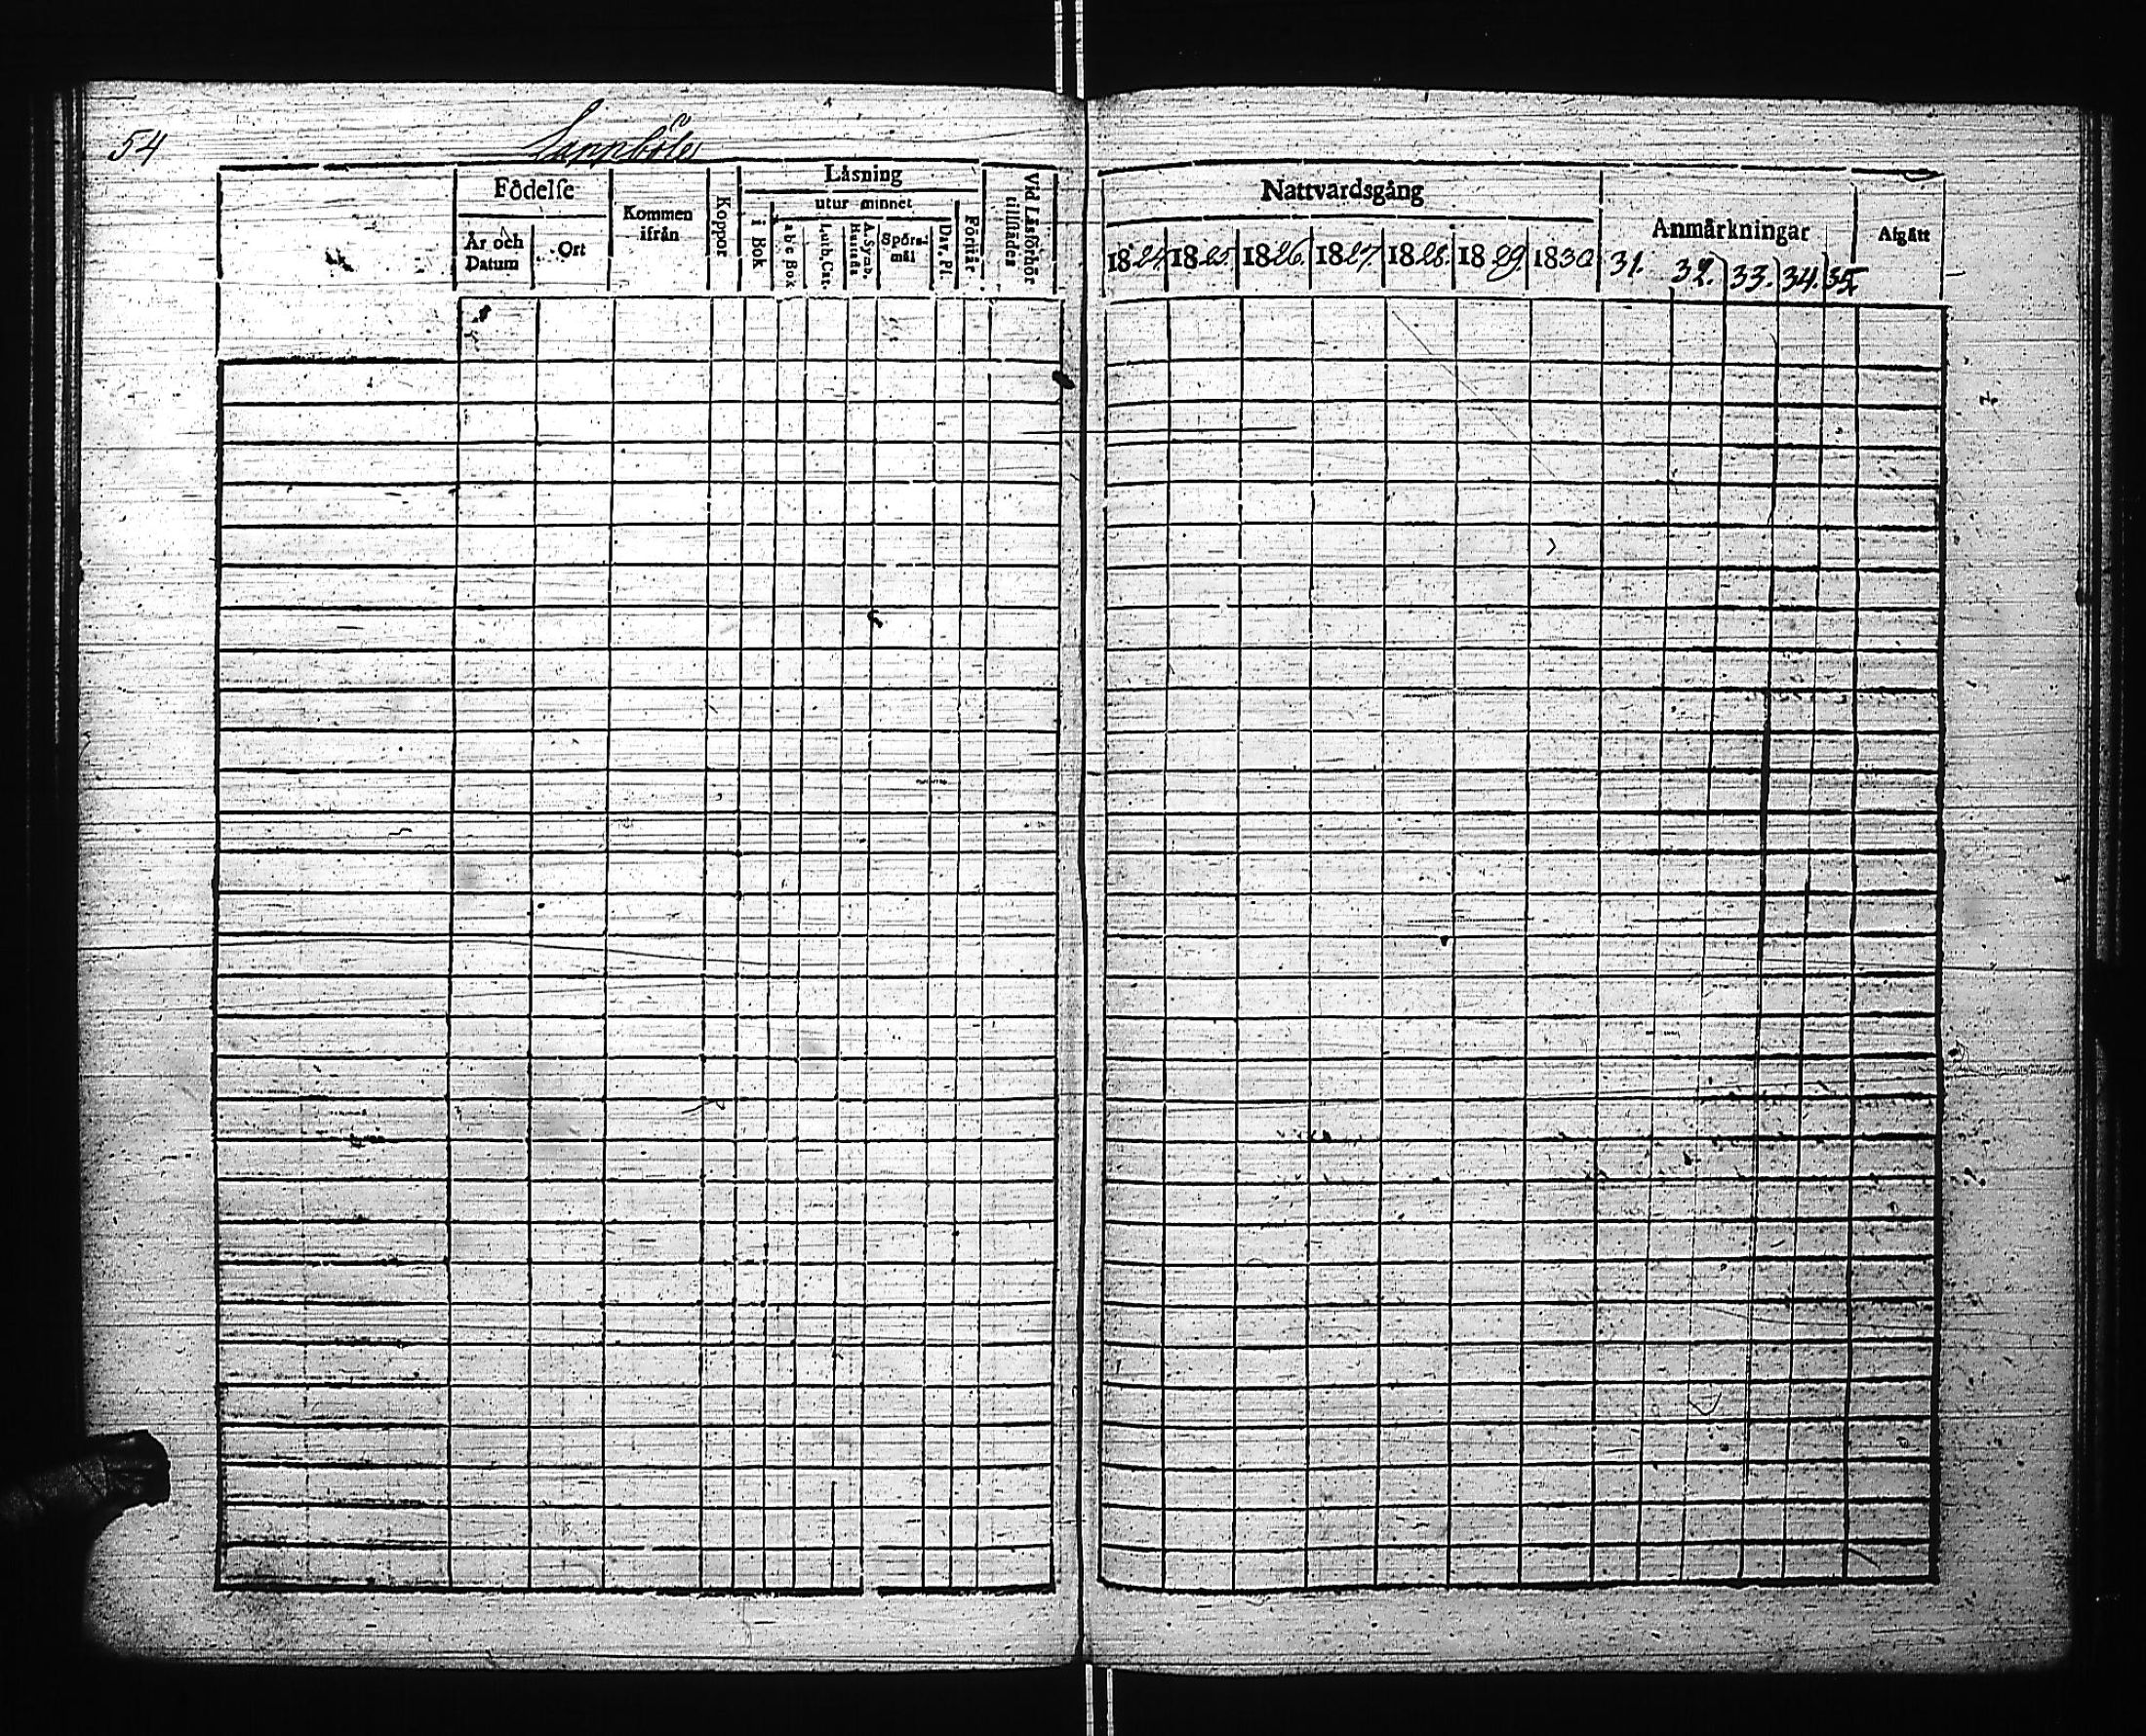 54
Lappböle
Födelse
År och Datum
Ort
Kommen ifrån
Koppor
Läsning
utur minnet
i Bok
abc Bok
Luth. Cat.
A. Symb. Hustafl.
Spörs-mål
Dav. Ps.
Förhör
Vid Läsförhör tillstädes
Nattvardsgång
1824. 1825. 1826. 1827. 1828. 1829. 1830
Anmärkningar
31. 32. 33. 34. 35.
Afgått